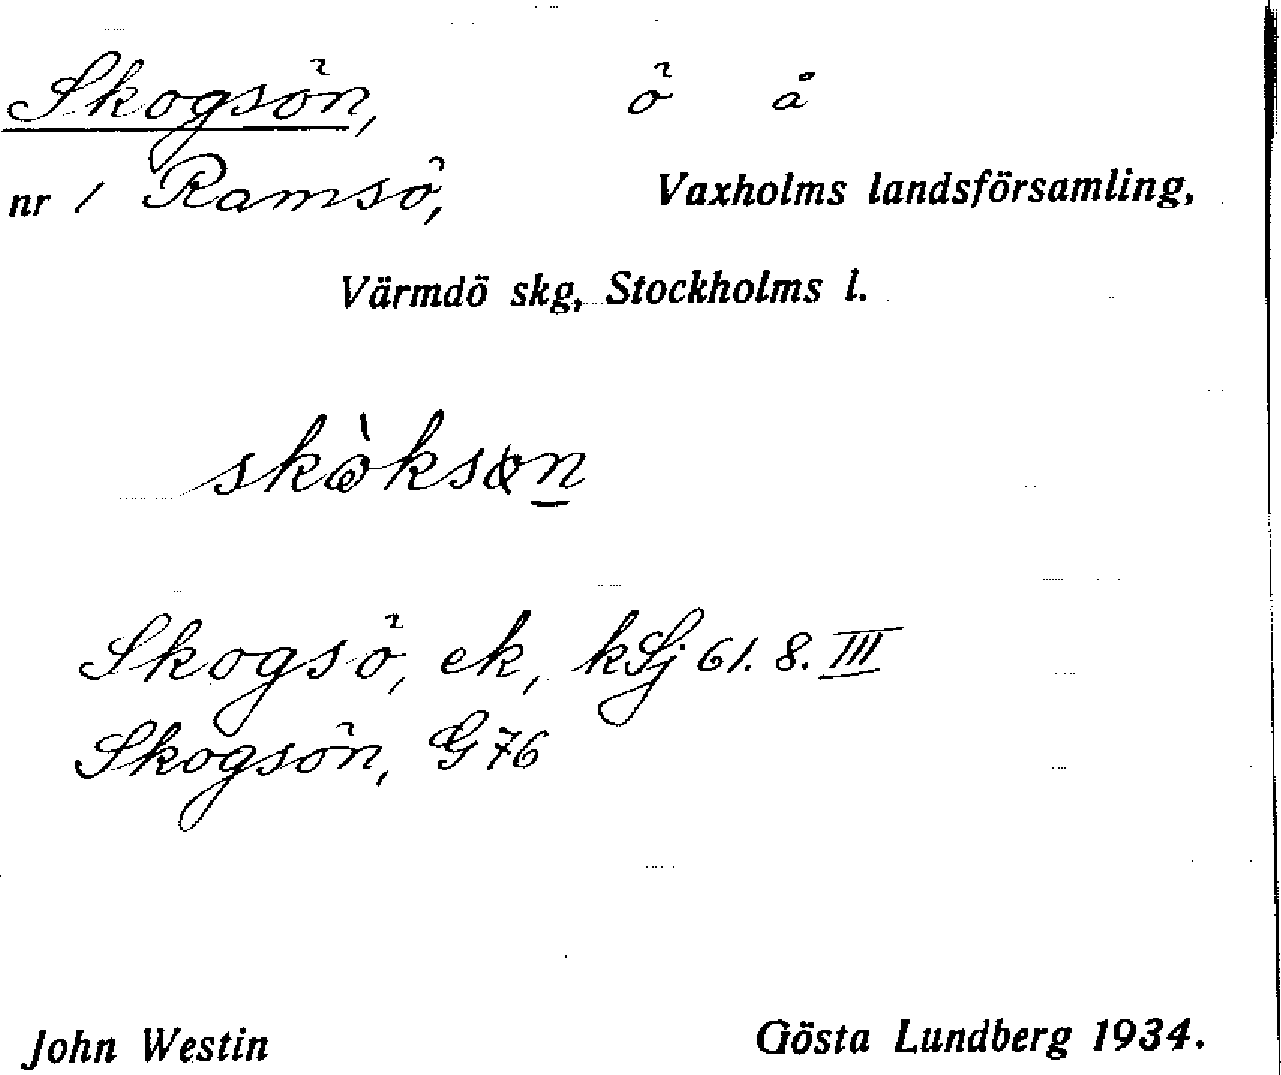 Skogsön, ö å
nr 1 Ramsö, Vaxholms landsförsamling,
Värmdö skg, Stockholms l.
Skogsö, ek, kSj 61. 8. III
Skogsön, G 76
John Westin Gösta Lundberg 1934.